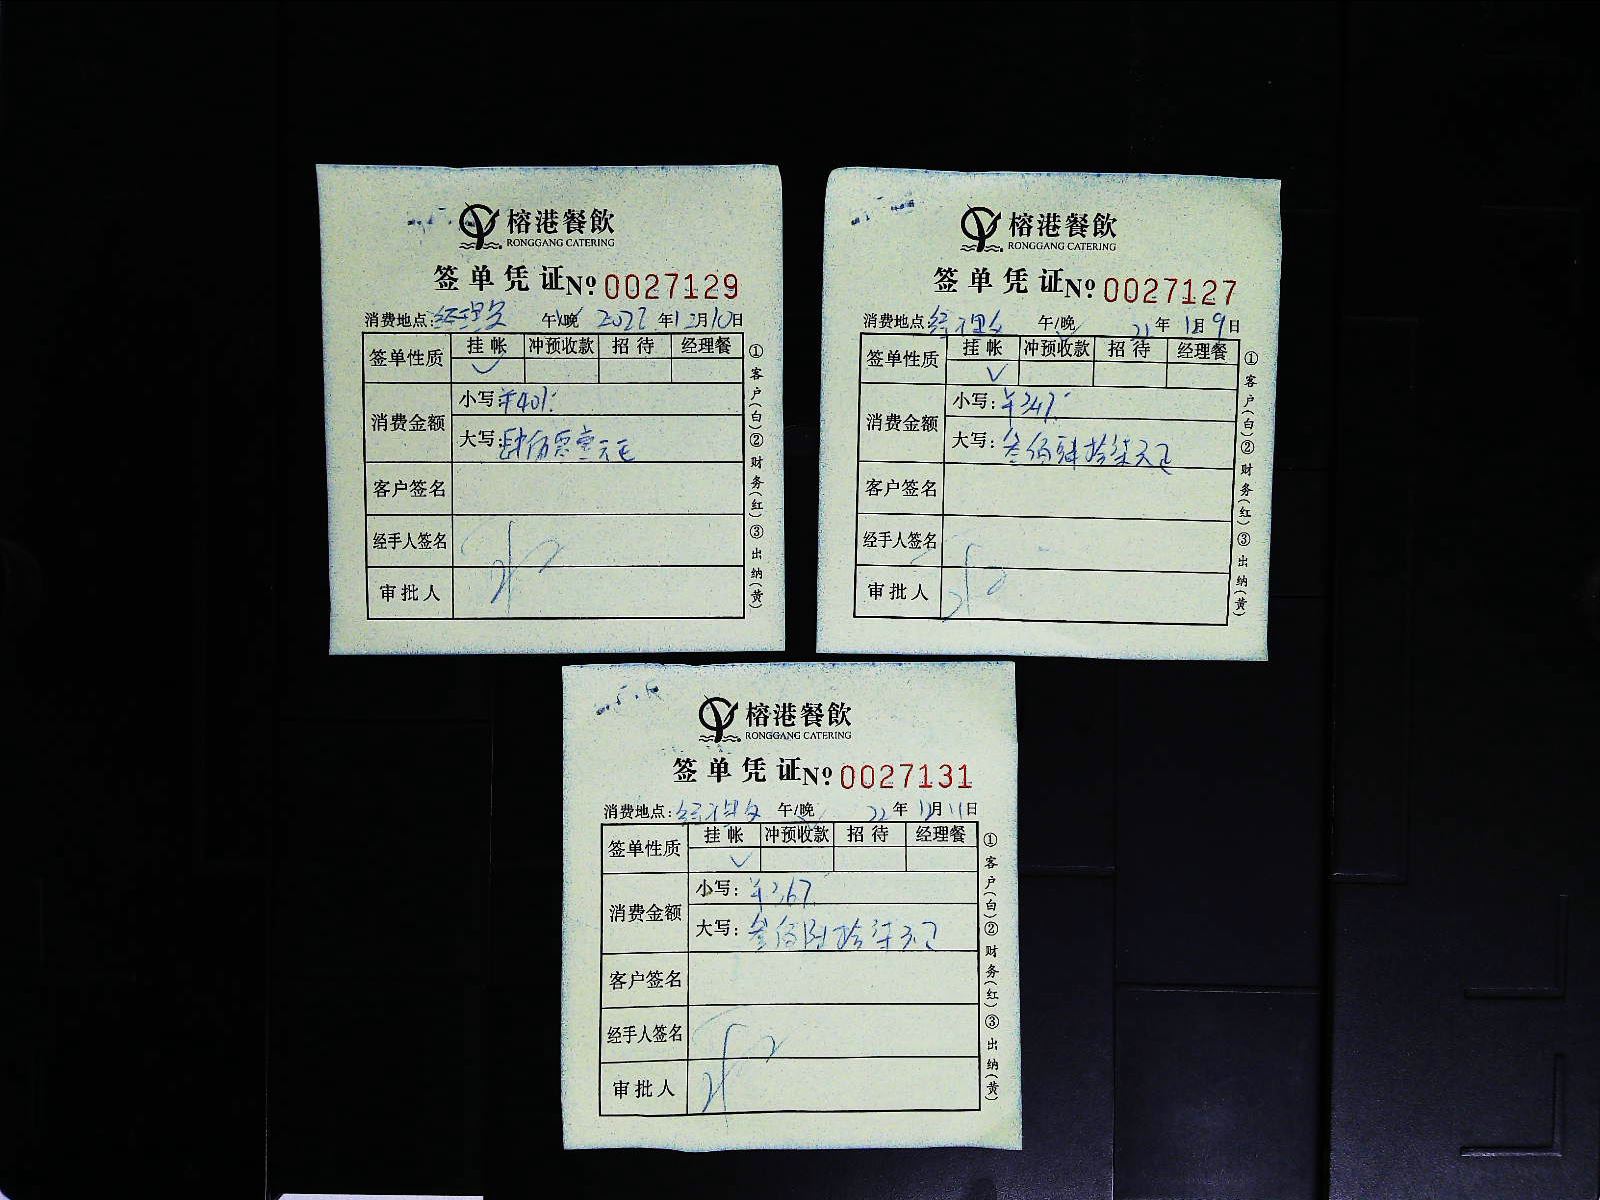 榕港餐飲
RONGGANG CATERING
签单凭证 No 0027129
消费地点: 午/晚 2022年12月10日
签单性质 挂帐 冲预收款 招待 经理餐
✓
消费金额 小写: ¥401.
大写: 肆佰零壹元正
客户签名
经手人签名
审批人
①客户(白)②财务(红)③出纳(黄)
榕港餐飲
RONGGANG CATERING
签单凭证 No 0027127
消费地点: 午/晚 年12月9日
签单性质 挂帐 冲预收款 招待 经理餐
✓
消费金额 小写: ¥347.
大写: 叁佰肆拾柒元正
客户签名
经手人签名
审批人
①客户(白)②财务(红)③出纳(黄)
榕港餐飲
RONGGANG CATERING
签单凭证 No 0027131
消费地点: 午/晚 22年12月11日
签单性质 挂帐 冲预收款 招待 经理餐
✓
消费金额 小写: ¥367.
大写: 叁佰陆拾柒元正
客户签名
经手人签名
审批人
①客户(白)②财务(红)③出纳(黄)